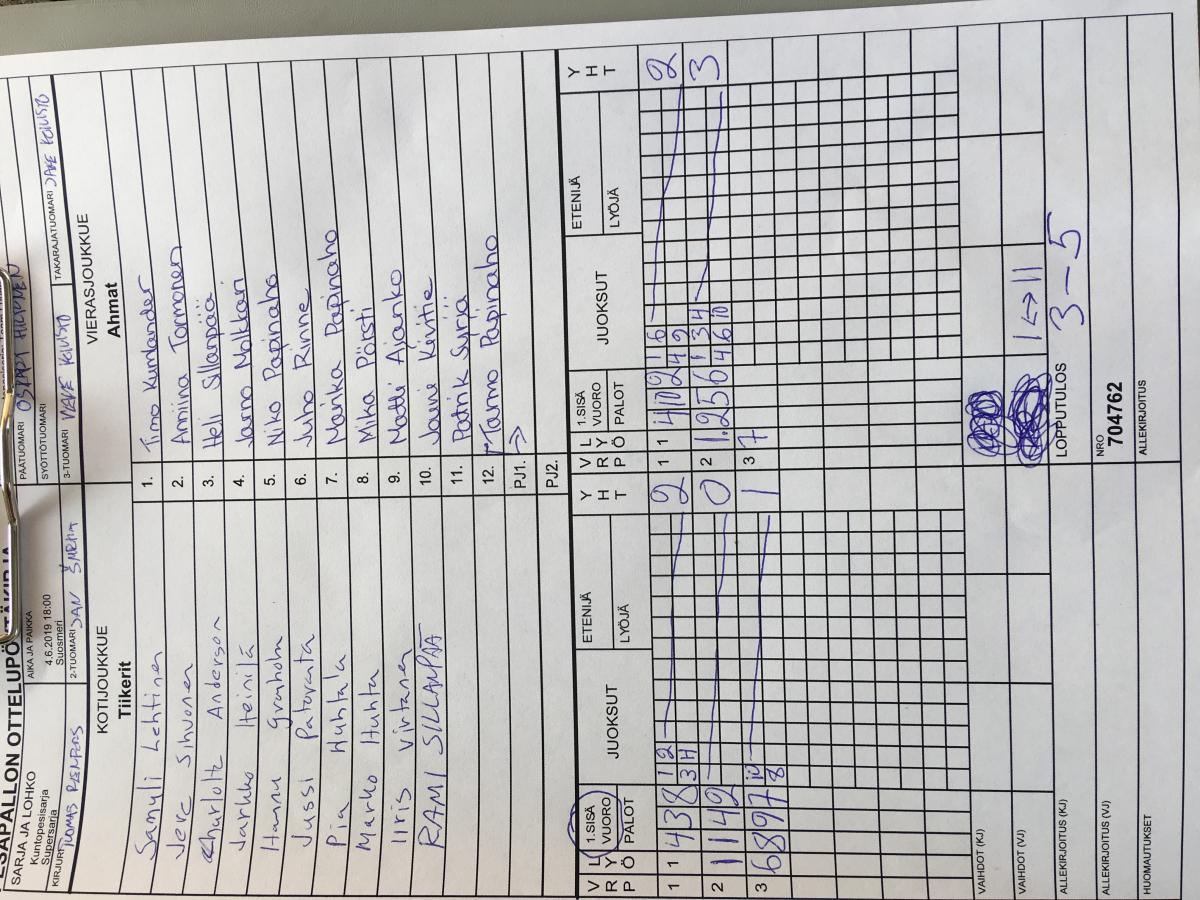 PESÄPALLON OTTELUPÖYTÄKIRJA
SARJA JA LOHKO
Kuntopesisarja
Supersarja
AIKA JA PAIKKA
4.6.2019 18:00
Suosmeri
PÄÄTUOMARI
SYÖTTÖTUOMARI
KIRJURI TUOMAS
2-TUOMARI JAN
3-TUOMARI VEKE KOIVISTO
TAKARAJATUOMARI JAKE KOIVISTO
KOTIJOUKKUE
Tiikerit
VIERASJOUKKUE
Ahmat
Samuli Lehtinen 1. Timo Kumlander
Jere Sihvonen 2. Anniina Tormonen
Charlotte Anderson 3. Heli Sillanpää
Jarkko Heinilä 4. Jarno Molkkari
Hannu Granholm 5. Niko Papinaho
Jussi Patovanta 6. Juho Rinne
Pia Huhtala 7. Marika Papinaho
Marko Huhta 8. Mika Pörsti
Iiris Virtanen 9. Matti
RAMI SILLANPÄÄ 10.
11. Patrik Syrjä
12. Tarmo Papinaho
PJ1.
PJ2.
V R P L Y Ö 1.SISÄ VUORO PALOT JUOKSUT ETENIJÄ LYÖJÄ Y H T V R P L Y Ö 1.SISÄ VUORO PALOT JUOKSUT ETENIJÄ LYÖJÄ Y H T
1 1 4 3 8 1 2 2 1 1 4 10 2 1 6 2
3 4 4 9
2 1 1 4 2 0 2 1. 2 5 6 1 3 4 3
4 6 10
3 6 8 9 7 10 1 3 7
8
VAIHDOT (KJ)
VAIHDOT (VJ) 1 <-> 11
ALLEKIRJOITUS (KJ) LOPPUTULOS 3 – 5
ALLEKIRJOITUS (VJ) NRO
704762
HUOMAUTUKSET ALLEKIRJOITUS